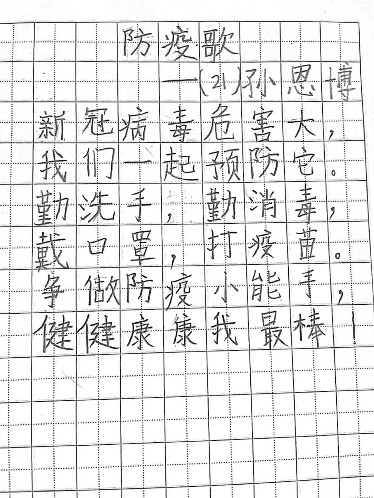 防疫歌
一(2)孙恩博
新冠病毒危害大，
我们一起预防它。
勤洗手，勤消毒，
戴口罩，打疫苗。
争做防疫小能手，
健健康康我最棒！